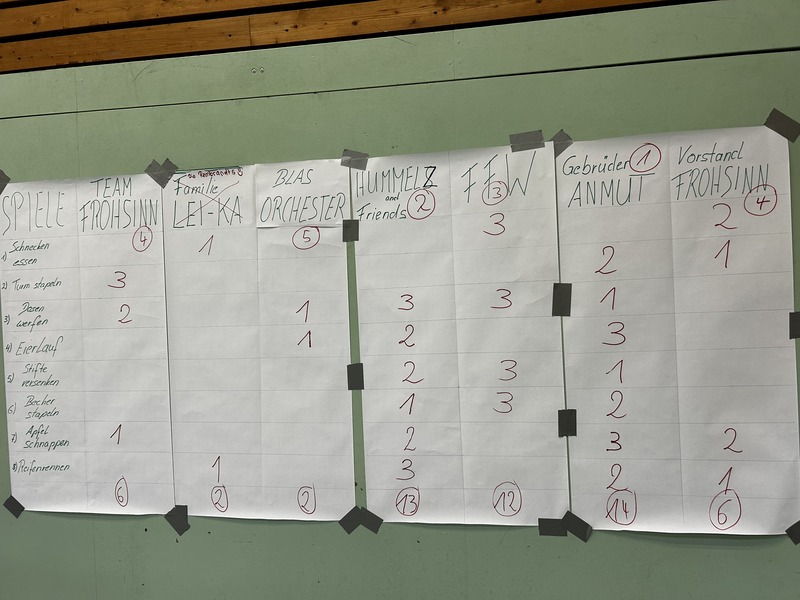 SPIELE
TEAM
FROHSINN
4
Familie
LEI-KA
BLAS
ORCHESTER
5
HUMMELZ
and
Friends 2
FFW
3
Gebrüder 1
ANMUT
Vorstand
FROHSINN
4
1) Schnecken
essen
1
3
2
2
1
2) Turm stapeln
3
3) Dosen
werfen
2
1
3
3
1
4) Eierlauf
1
2
3
5) Stifte
versenken
2
3
1
6) Becher
stapeln
1
3
2
7) Apfel
schnappen
1
2
3
2
8) Reifenrennen
1
3
2
1
6
2
2
13
12
14
6